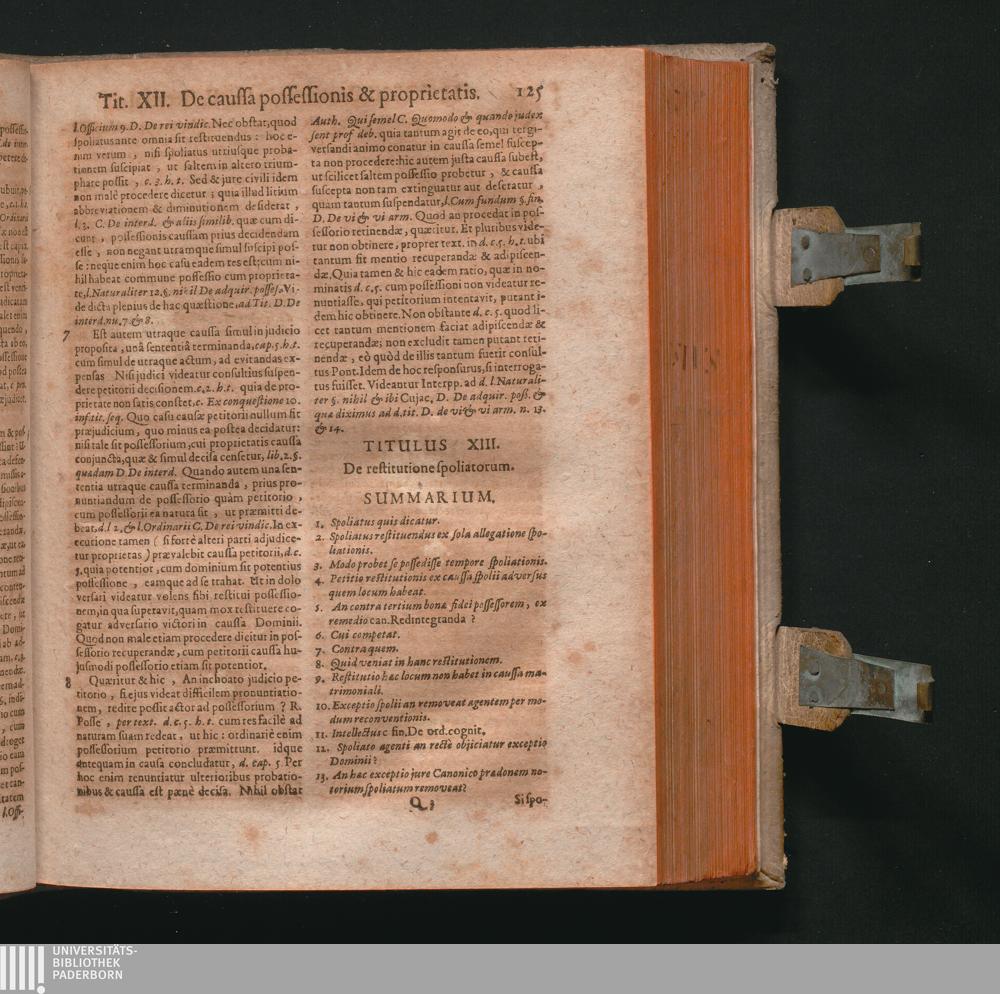 Tit. XII. De caussa possessionis & proprietatis. 125
l. Officium 9. D. De rei vindic. Nec obstat, quod
spoliatus ante omnia sit restituendus: hoc e-
nim verum, nisi spoliatus utriusque proba-
tionem suscipiat, ut saltem in altero trium-
phare possit, c. 3. h. t. Sed & jure civili idem
non malè procedere dicetur; quia illud litium
abbreviationem & diminutionem desiderat,
l. 3. C. De interd. & aliis similib. quæ cum di-
cunt, possessionis caussam prius decidendam
esse, non negant utramque simul suscipi pos-
se: neque enim hoc casu eadem res est; cum ni-
hil habeat commune possessio cum proprieta-
te, l. Naturaliter 12. §. nihil De adquir. posses. Vi-
de dicta plenius de hac quæstione, ad Tit. D. De
interd. nu. 7. & 8.
7 Est autem utraque caussa simul in judicio
proposita, unâ sententiâ terminanda, cap. 5. h. t.
cum simul de utraque actum, ad evitandas ex-
pensas Nisi judici videatur consultius suspen-
dere petitorii decisionem. c. 2. h. t. quia de pro-
prietate non satis constet, c. Ex conquestione 10.
inf. tit. seq. Quo casu causæ petitorii nullum fit
præjudicium, quo minus ea postea decidatur:
nisi tale sit possessorium, cui proprietatis caussa
conjuncta, quæ & simul decisa censetur, lib. 2. §.
quædam D De interd. Quando autem una sen-
tentia utraque caussa terminanda, prius pro-
nuntiandum de possessorio quàm petitorio,
cum possessorii ea natura sit, ut præmitti de-
beat, d. l 2, & l. Ordinarii C. De rei vindic. In ex-
ecutione tamen ( si fortè alteri parti adjudice-
tur proprietas ) prævalebit caussa petitorii, d. c.
5. quia potentior, cum dominium sit potentius
possessione, eamque ad se trahat. Et in dolo
versari videatur volens sibi restitui possessio-
nem, in qua superavit, quam mox restituere co-
gatur adversario victori in caussa Dominii.
Quod non male etiam procedere dicitur in pos-
sessorio recuperandæ, cum petitorii caussa hu-
jusmodi possessorio etiam sit potentior.
8 Quæritur & hic, An inchoato judicio pe-
titorio, si ejus videat difficilem pronuntiatio-
nem, redire possit actor ad possessorium? R.
Posse, per text. d. c. 5. h. t. cum res facilè ad
naturam suam redeat, ut hic: ordinariè enim
possessorium petitorio præmittunt. idque
antequam in causa concludatur, d. cap. 5. Per
hoc enim renuntiatur ulterioribus probatio-
nibus & caussa est pænè decisa. Nihil obstat
Auth. Qui semel C. Quomodo & quando judex
sent prof deb. quia tantum agit de eo, qui tergi-
versandi animo conatur in caussa semel suscep-
ta non procedere: hic autem justa caussa subest,
ut scilicet saltem possessio probetur, & caussa
suscepta non tam extinguatur aut deseratur,
quam tantum suspendatur, l. Cum fundum §. fin.
D. De vi & vi arm. Quod an procedat in pos-
sessorio retinendæ, quæritur. Et pluribus vide-
tur non obtinere, propter text. in d. c. 5. h. t. ubi
tantum fit mentio recuperandæ & adipiscen-
dæ. Quia tamen & hic eadem ratio, quæ in no-
minatis d. c. 5. cum possessioni non videatur re-
nuntiasse, qui petitorium intentavit, putant i-
dem hic obtinere. Non obstante d. c. 5. quod li-
cet tantum mentionem faciat adipiscendæ &
recuperandæ; non excludit tamen putant reti-
nendæ, eò quòd de illis tantum fuerit consul-
tus Pont. Idem de hoc responsurus, si interroga-
tus fuisset. Videantur Interpp. ad d. l. Naturali-
ter §. nihil & ibi Cujac, D. De adquir. poss. &
quæ diximus ad d. tit. D. de vi & vi arm. n. 13.
& 14.
TITULUS XIII.
De restitutione spoliatorum.
SUMMARIUM.
1. Spoliatus quis dicatur.
2. Spoliatus restituendus ex sola allegatione spo-
liationis.
3. Modo probet se possedisse tempore spoliationis.
4. Petitio restitutionis ex caussa spolii adversus
quem locum habeat.
5. An contra tertium bonæ fidei possessorem, ex
remedio can. Redintegranda ?
6. Cui competat.
7. Contra quem.
8. Quid veniat in hanc restitutionem.
9. Restitutio hæc locum non habet in caussa ma-
trimoniali.
10. Exceptio spolii an removeat agentem per mo-
dum reconventionis.
11. Intellectus c fin. De ord. cognit.
12. Spoliato agenti an rectè objiciatur exceptio
Dominii?
13. An hæc exceptio jure Canonico prædonem no-
torium spoliatum removeat?
Q 3 Si spo-
UNIVERSITÄTS-
BIBLIOTHEK
PADERBORN